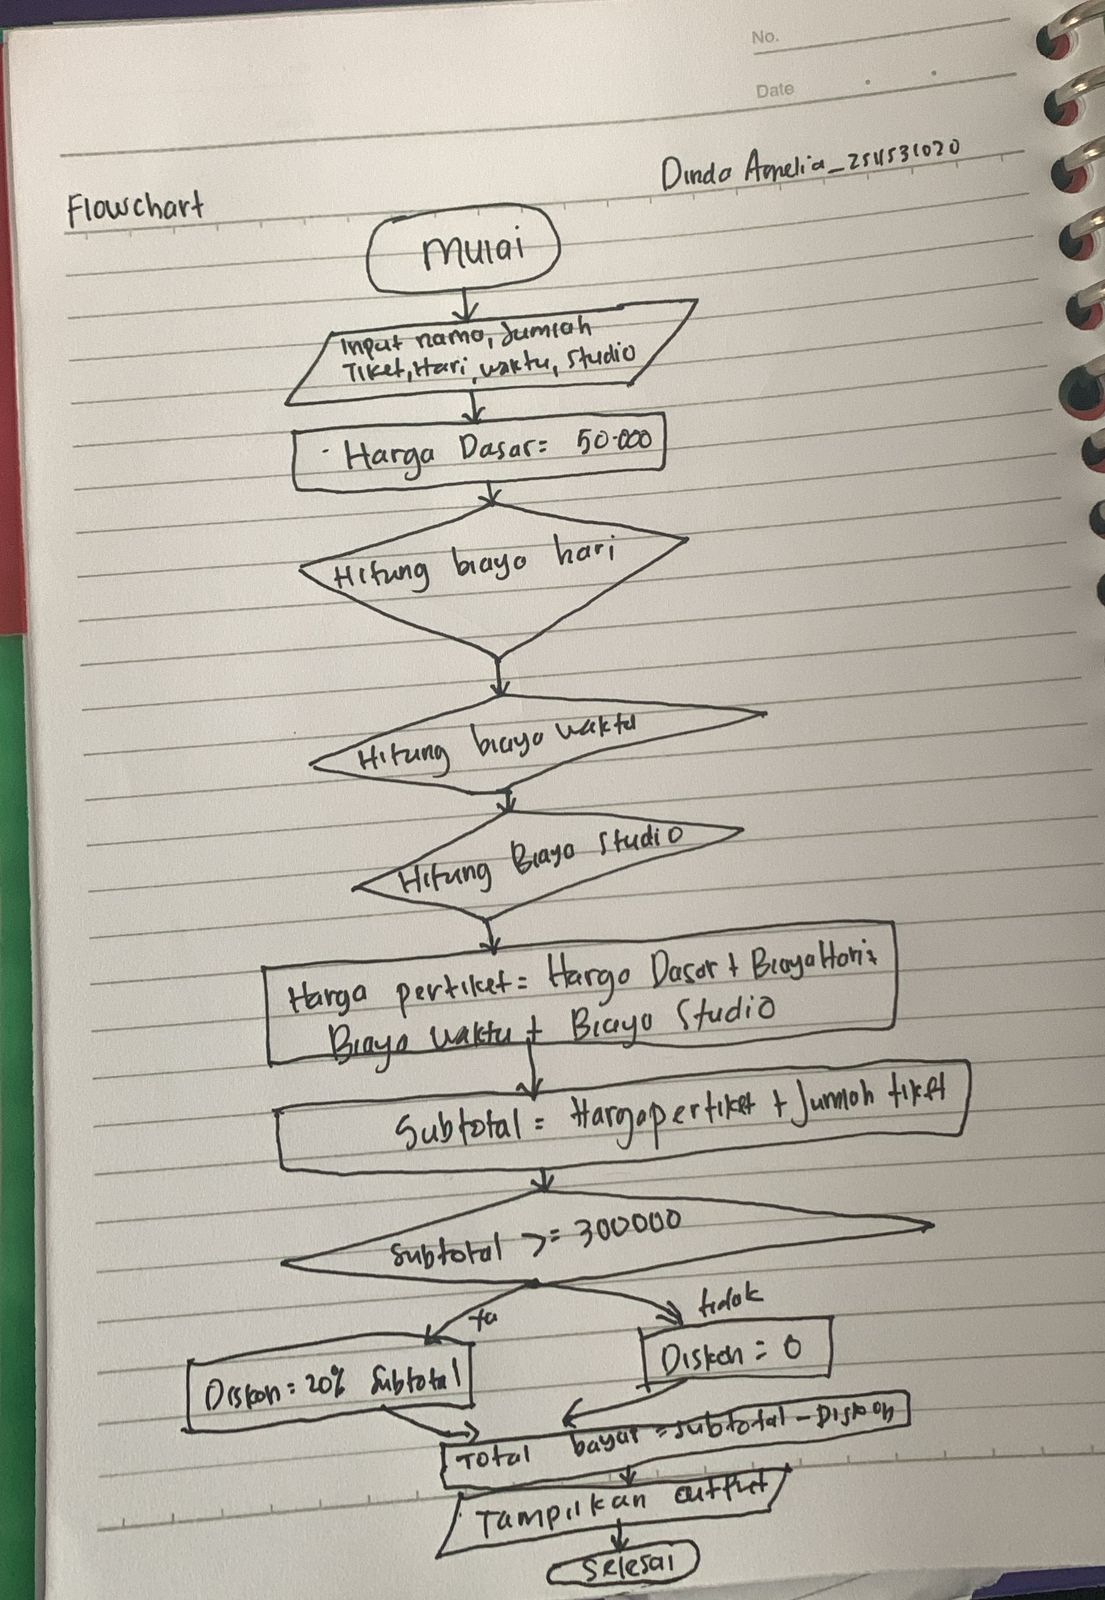 No.
Date
Dinda Amelia_2511531020
Flowchart
Mulai
Input nama, Jumlah
Tiket, Hari, waktu, Studio
Harga Dasar = 50.000
Hitung biaya hari
Hitung biaya waktu
Hitung Biaya Studio
Harga pertiket = Harga Dasar + Biaya Hari +
Biaya waktu + Biaya Studio
Subtotal = Harga pertiket + Jumlah tiket
Subtotal >= 300000
ya
tidak
Diskon = 20% Subtotal
Diskon = 0
Total bayar = Subtotal - Diskon
Tampilkan output
Selesai